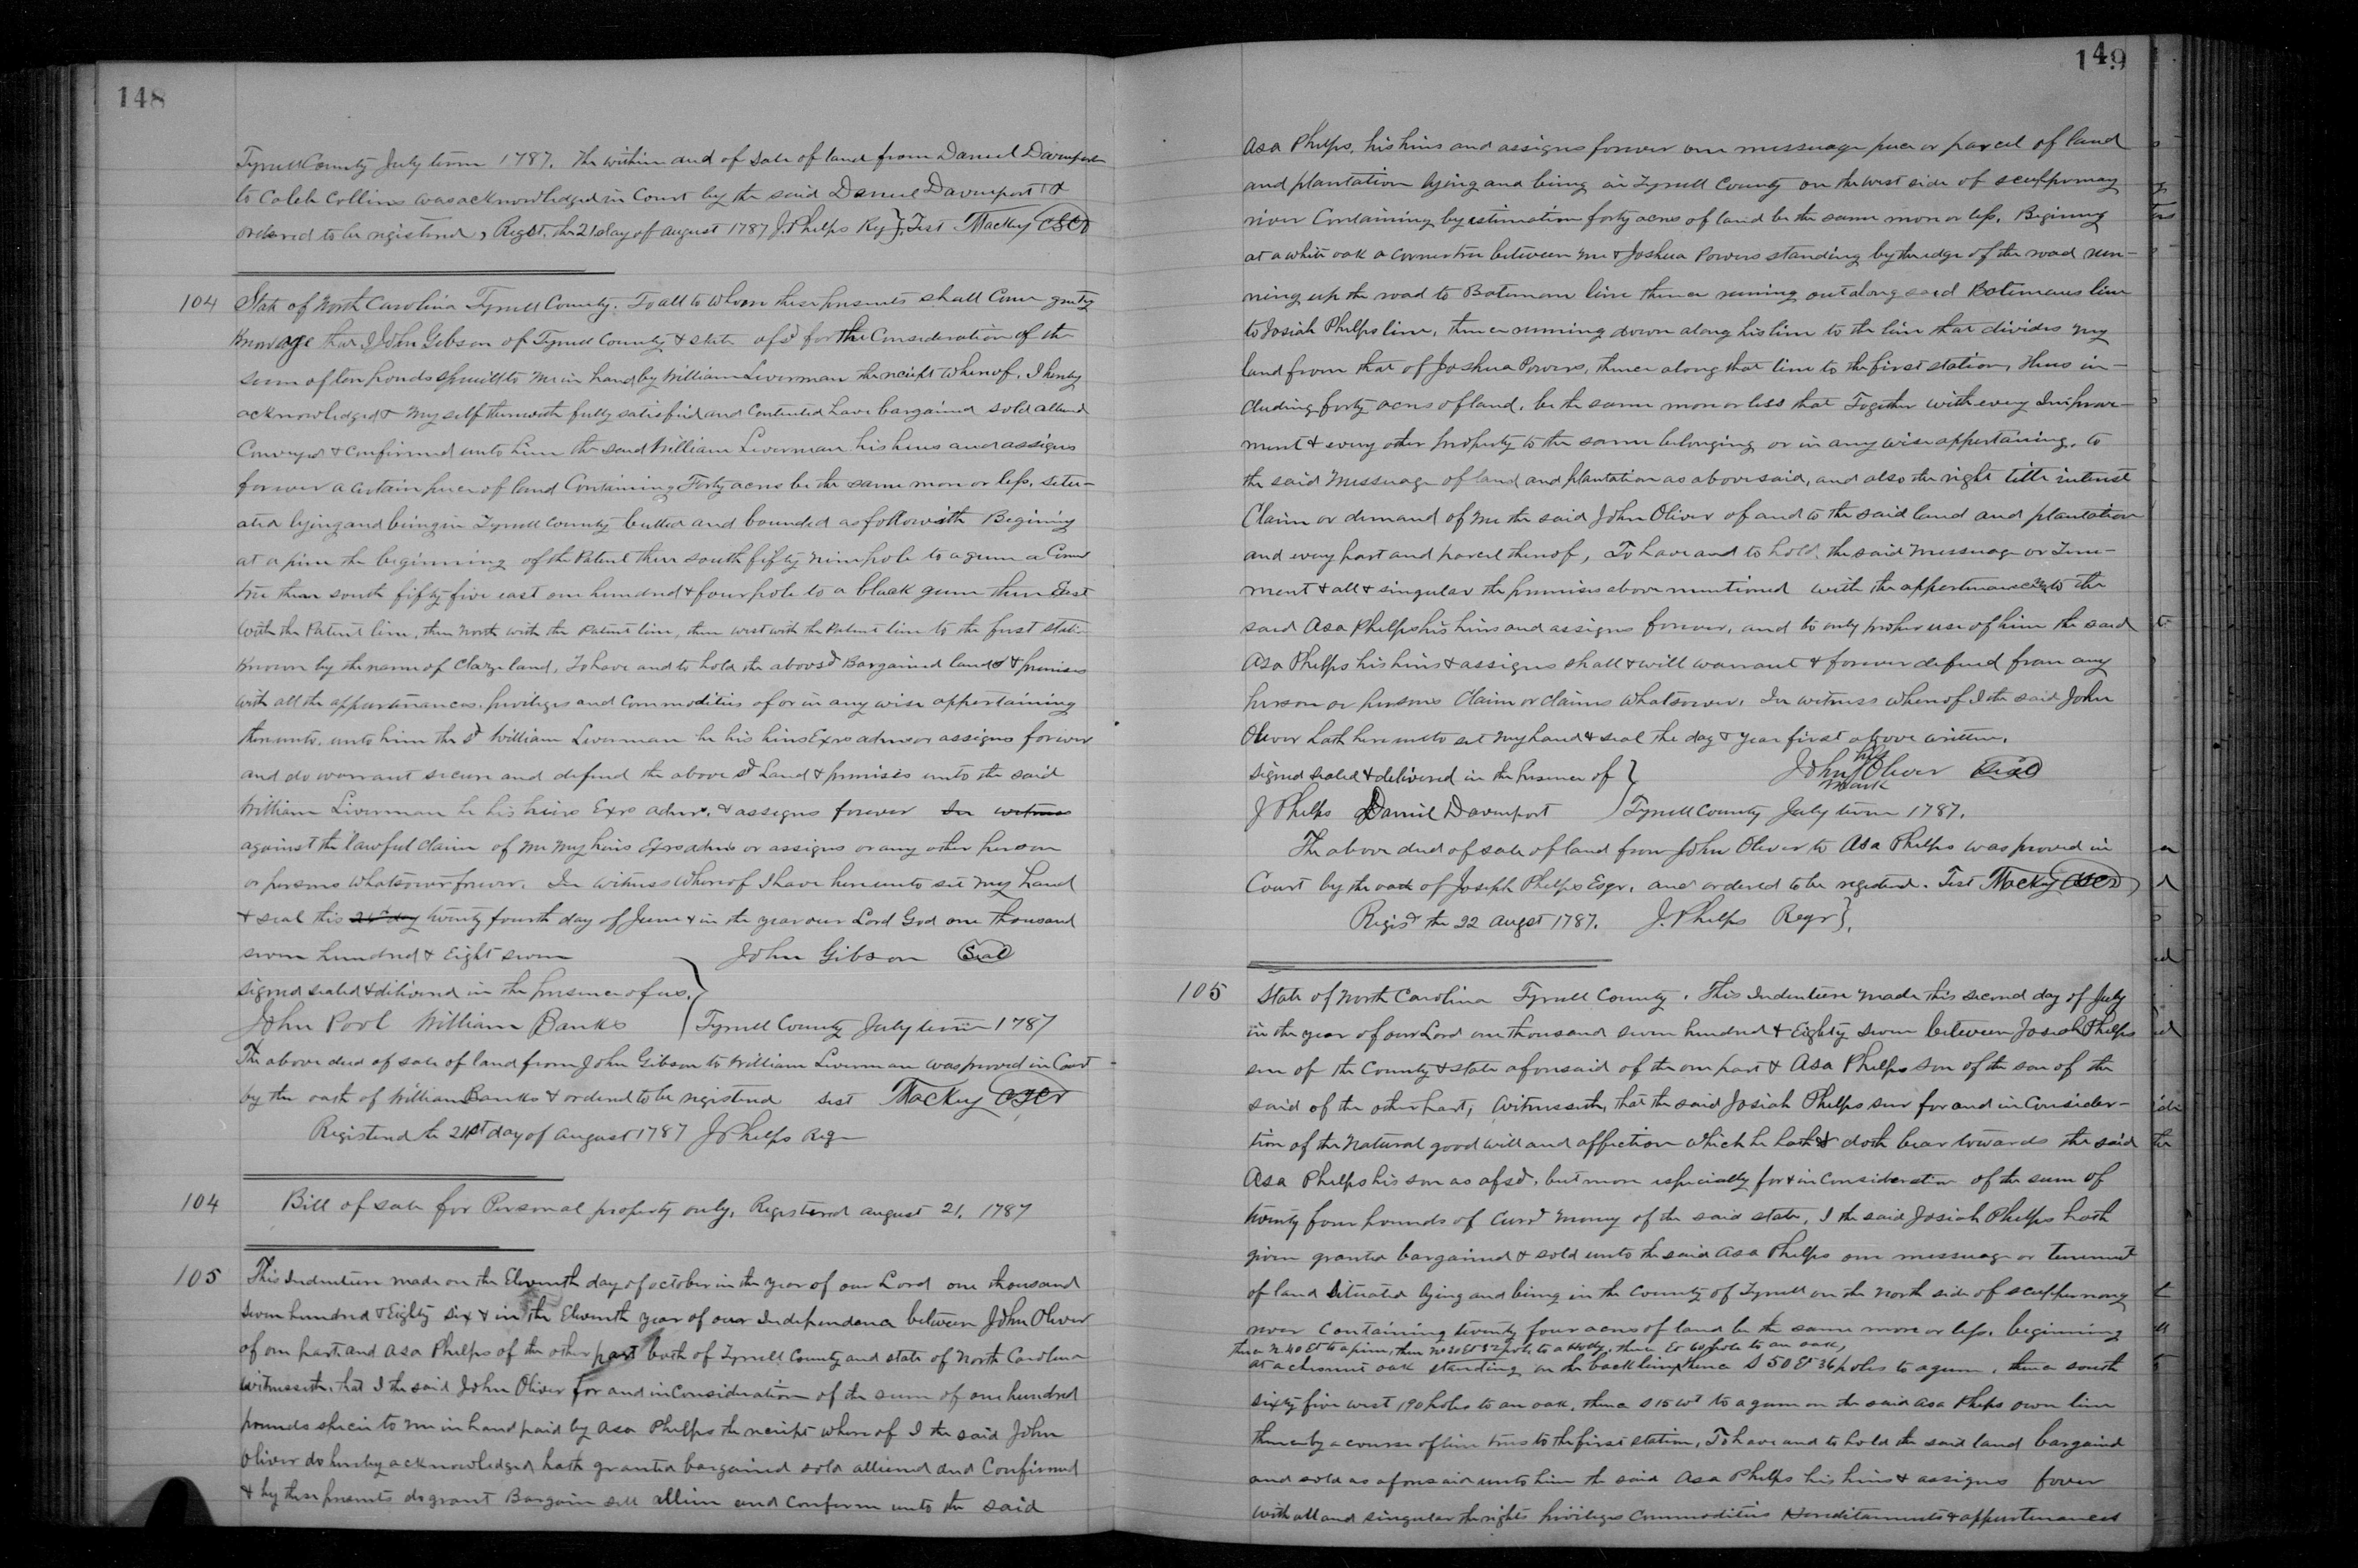 148
Tyrrell County July term 1787. The within and of sale of land from Daniel Davenport
to Caleb Collins was acknowledged in Court by the said Daniel Davenport &
ordered to be registered, Regst. the 21 day of August 1787 J. Phelps Reg}. Test Mackey CSCT
104 State of North Carolina Tyrrell County. To all to whom these presents shall Come greeting
Know age that I John Gibson of Tyrrell County & state afsd for the Consideration of the
sum of ten ponds to me in hand by William Liverman the receipt whereof, I hereby
acknowledged & my self therewith fully satisfied and Contented have bargained sold aliend
Conveyed & confirmed unto him the said William Liverman his heirs and assigns
forever a certain piece of land Containing Forty acres be the same more or less, situ-
ated lying and being in Tyrrell County butted and bounded as followeth Begining
at a pine the beginning of the Patent then south fifty nine pole to a gum a Corner
tree then south fifty five east one hundred & four pole to a black gum then East
with the Patent line, then North with the patent line, then west with the Patent line to the first station
known by the name of Claze land, To have and to hold the abovsd Bargained lands & premises
with all the appurtinances, privileges and Commodities of or in any wise appertaining
thereunto, unto him the sd William Liverman he his heirs Exrs admrs or assigns forever
and do warrant secure and defend the above sd Land & premises unto the said
William Liverman he his heirs Exrs admrs. & assigns forever In witness
against the lawful claim of me my heirs Exrs admrs or assigns or any other person
or persons whatsoever forever. In witness whereof I have hereunto set my hand
& seal this 24th day twenty fourth day of June & in the year our Lord God one thousand
seven hundred & Eight seven John Gibson Seal
signed sealed & delivered in the presence of us. }
John Pool William Banks } Tyrrell County July term 1787
The above deed of sale of land from John Gibson to William Liverman was proved in Court
by the oath of William Banks & orderd to be registered Test Mackey CSCT
Registered the 21st day of August 1787 J Phelps Regr
104 Bill of sale for Personal property only, Registered august 21, 1787
105 This Indenture made on the Eleventh day of october in the year of our Lord one thousand
seven hundred & Eighty six & in the Eleventh year of our Independence between John Oliver
of one part and Asa Phelps of the other part both of Tyrrell County and state of North Carolina
witnesseth, that I the said John Oliver for and in Consideration of the sum of one hundred
pounds specie to me in hand paid by Asa Phelps the receipt whereof I the said John
Oliver do hereby acknowledged, hath granted bargained sold alliened and Confirmed
& by these presents do grant Bargain sell allien and Conferm unto the said
149
Asa Phelps, his heirs and assigns forever one messuage piece or parcel of land
and plantation lying and being in Tyrrell County on the west side of scuppernong
river Containing by estimation forty acres of land be the same more or less, Begining
at a white oak a corner tree between me & Joshua Powers standing by the edge of the road run-
ning up the road to Bateman line thence running out along said Batemans line
to Josiah Phelps line, thence running down along his line to the line that divides my
land from that of Joshua Powers, thence along that line to the first station, thus in-
cluding forty acres of land, be the same more or less that Together with every Improve-
ment & every other property to the same belonging or in any wise appertaining, to
the said Messuage of land and plantation as above said, and also the right title interest
Claim or demand of me the said John Oliver of and to the said land and plantation
and every part and parcel thereof, To have and to hold, the said Messuage or Tene-
ment & all & singular the premises above mentioned with the appertenances to the
said Asa Phelps his heirs and assigns forever, and to only proper use of him the said
Asa Phelps his heirs & assigns shall & will warrant & forever defend from any
person or persons Claim or claims whatsoever. In witness whereof I the said John
Oliver hath hereunto set my hand & seal the day & year first above written.
his
signed sealed & delivered in the presence of } John Oliver Seal
mark
J Phelps Daniel Davenport ) Tyrrell County July term 1787.
The above deed of sale of land from John Oliver to Asa Phelps was proved in
Court by the oath of Joseph Phelps Esqr. and ordered to be registered. Test Mackey CSCT
Regisd the 22 Augst 1787. J. Phelps Regr}.
105 State of North Carolina Tyrrell County. This Indenture made this second day of July
in the year of our Lord one thousand seven hundred & Eighty seven between Josiah Phelps
snr of the County & state aforesaid of the one part & Asa Phelps son of the son of the
said of the other part, Witnesseth, that the said Josiah Phelps snr for and in Consider-
tion of the natural good will and affection which he hath & doth bear towards the said
Asa Phelps his son as afsd, but more especially for & in Consideration of the sum of
twenty four pounds of Curd money of the said state, I the said Josiah Phelps hath
given granted bargained & sold unto the said Asa Phelps one messuage or tenement
of land situated lying and being in the County of Tyrrell on the north side of scuppernong
river Containing twenty four acres of land be the same more or less, beginning
thence N 40 Et to a pine, then No 20 Et 52 pole, to a thence Et 60 pole to an oak,
at a chesnut oak standing on the back line, thence S 50 Et 36 poles to a gum, thence south
sixty five west 190 poles to an oak, thence S 15 wt to a gum on the said Asa Phelps own line
thence by a course of line trees to the first station, To have and to hold the said land bargaind
and sold as aforesaid unto him the said Asa Phelps his heirs & assigns fover
with all and singular the rights privileges Commodities Hereditaments & appurtenances